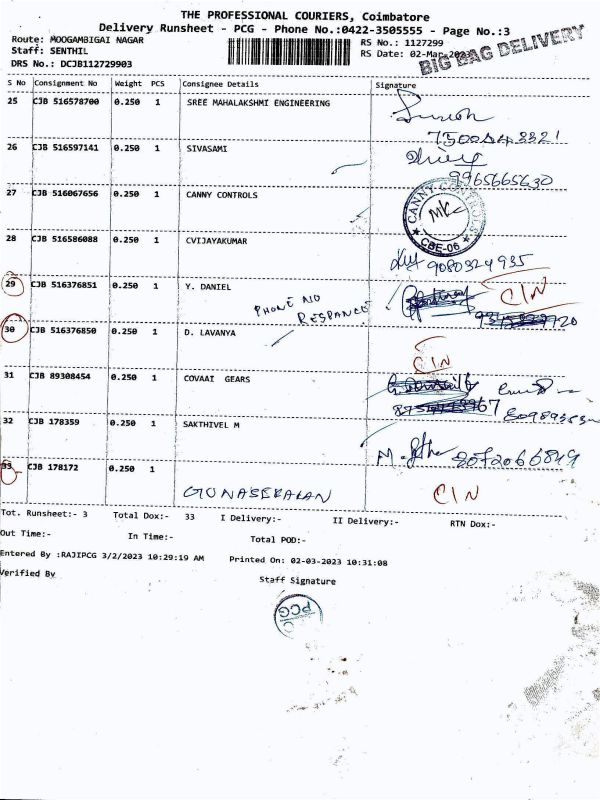 THE PROFESSIONAL COURIERS, Coimbatore
Delivery Runsheet - PCG - Phone No.:0422-3505555 - Page No.:3
Route: MOOGAMBIGAI NAGAR RS No.: 1127299
Staff: SENTHIL RS Date: 02-Mar-2023
BIG BAG DELIVERY
DRS No.: DCJB112729903
S No Consignment No Weight PCS Consignee Details Signature
25 CJB 516578700 0.250 1 SREE MAHALAKSHMI ENGINEERING
26 CJB 516597141 0.250 1 SIVASAMI
9965665630
27 CJB 516067656 0.250 1 CANNY CONTROLS
CANNY CONTROLS
CBE-06
28 CJB 516586088 0.250 1 CVIJAYAKUMAR
9080324935
29 CJB 516376851 0.250 1 Y. DANIEL
PHONE NO
RESPANCE
CIN
30 CJB 516376850 0.250 1 D. LAVANYA
CIN
31 CJB 89308454 0.250 1 COVAAI GEARS
32 CJB 178359 0.250 1 SAKTHIVEL M
8072066849
33 CJB 178172 0.250 1
GUNASEKARAN CIN
Tot. Runsheet:- 3 Total Dox:- 33 I Delivery:- II Delivery:- RTN Dox:-
Out Time:- In Time:- Total POD:-
Entered By :RAJIPCG 3/2/2023 10:29:19 AM Printed On: 02-03-2023 10:31:08
Verified By Staff Signature
PCG